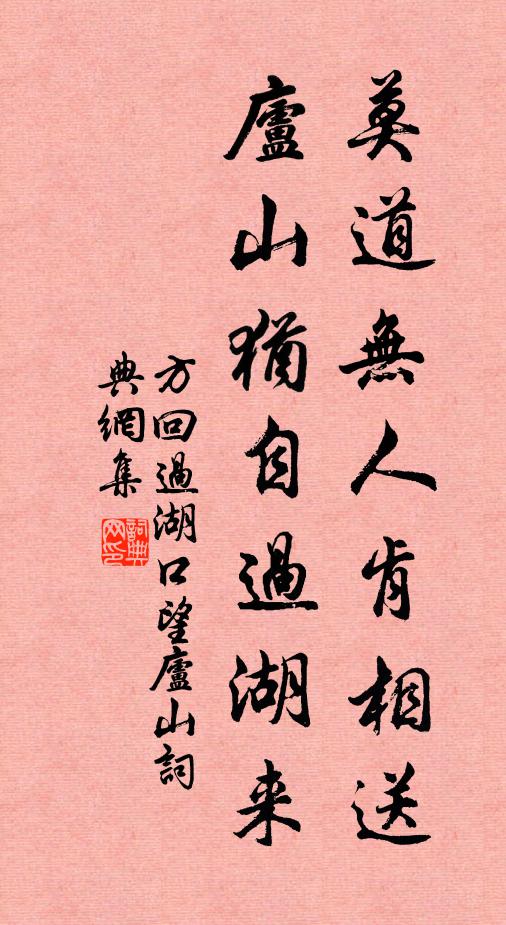 莫道無人肯相送
廬山猶自過湖来
方回過湖口望廬山詞
典網集
詞典
网印